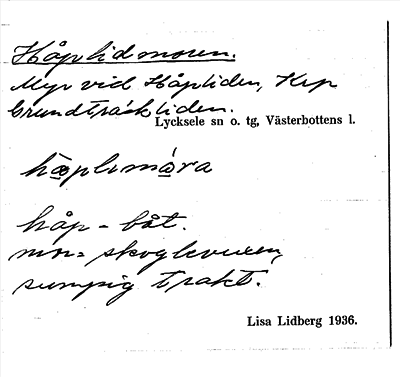 Håplidmoren.
Myr vid Håpliden, Krp
Grundträskliden.
Lycksele sn o. tg, Västerbottens l.
håp - båt.
mor = skogbevuxen,
sumpig trakt.
Lisa Lidberg 1936.